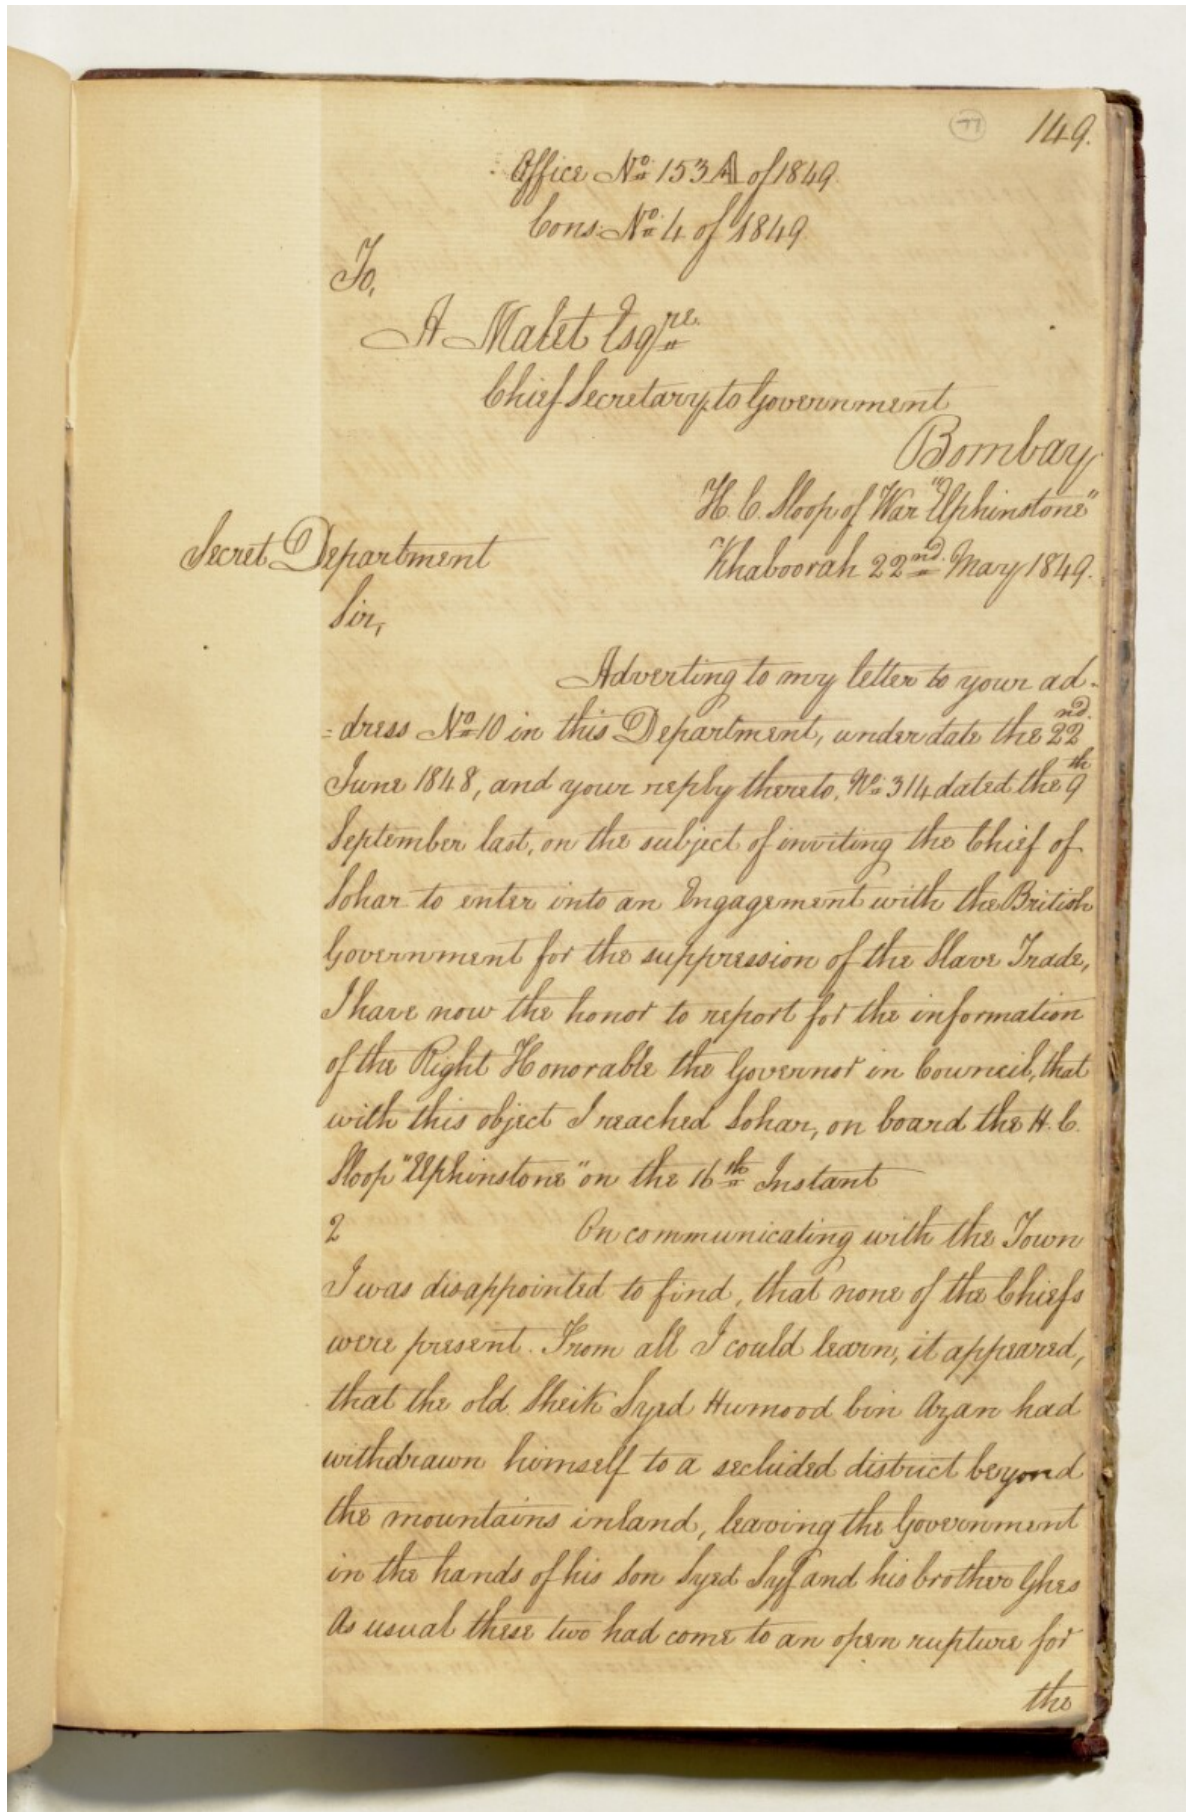 77
149.
Office No. 153 A of 1849
Cons: No. 4 of 1849
To,
A Malet Esqre.
Chief Secretary to Government
Bombay
H. C. Sloop of War "Elphinstone"
Secret Department
Khaboorah 22nd. May 1849.
Sir,
Adverting to my letter to your ad-
=dress No. 10 in this Department, under date the 22nd.
June 1848, and your reply thereto, No. 314 dated the 9th
September last, on the subject of inviting the Chief of
Sohar to enter into an Engagement with the British
Government for the suppression of the Slave Trade,
I have now the honor to report for the information
of the Right Honorable the Governor in Council, that
with this object I reached Sohar, on board the H. C.
Sloop "Elphinstone" on the 16th Instant
2 On communicating with the Town
I was disappointed to find, that none of the Chiefs
were present. From all I could learn, it appeared,
that the old Sheik Syed Humood bin Azan had
withdrawn himself to a secluded district beyond
the mountains inland, leaving the Government
in the hands of his Son Syed Syf and his brother Ghes
As usual these two had come to an open rupture for
the